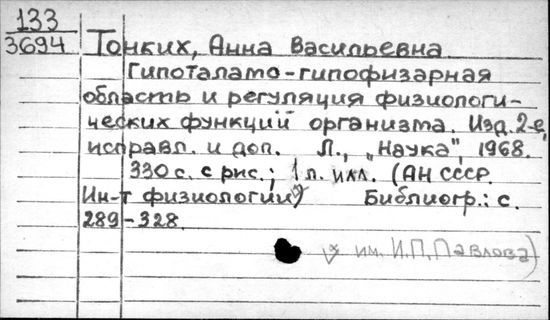 133
3694
Тонких, Анна Васильевна
Гипоталамо-гипофизарная
область и регуляция физиологи-
ческих функций организма. Изд. 2-е,
исправл. и доп. Л., „Наука", 1968.
330 с. с рис.; 1 л. илл. (АН СССР.
Ин-т физиологии) Библиогр.: с.
289-328.
им. И.П. Павлова)